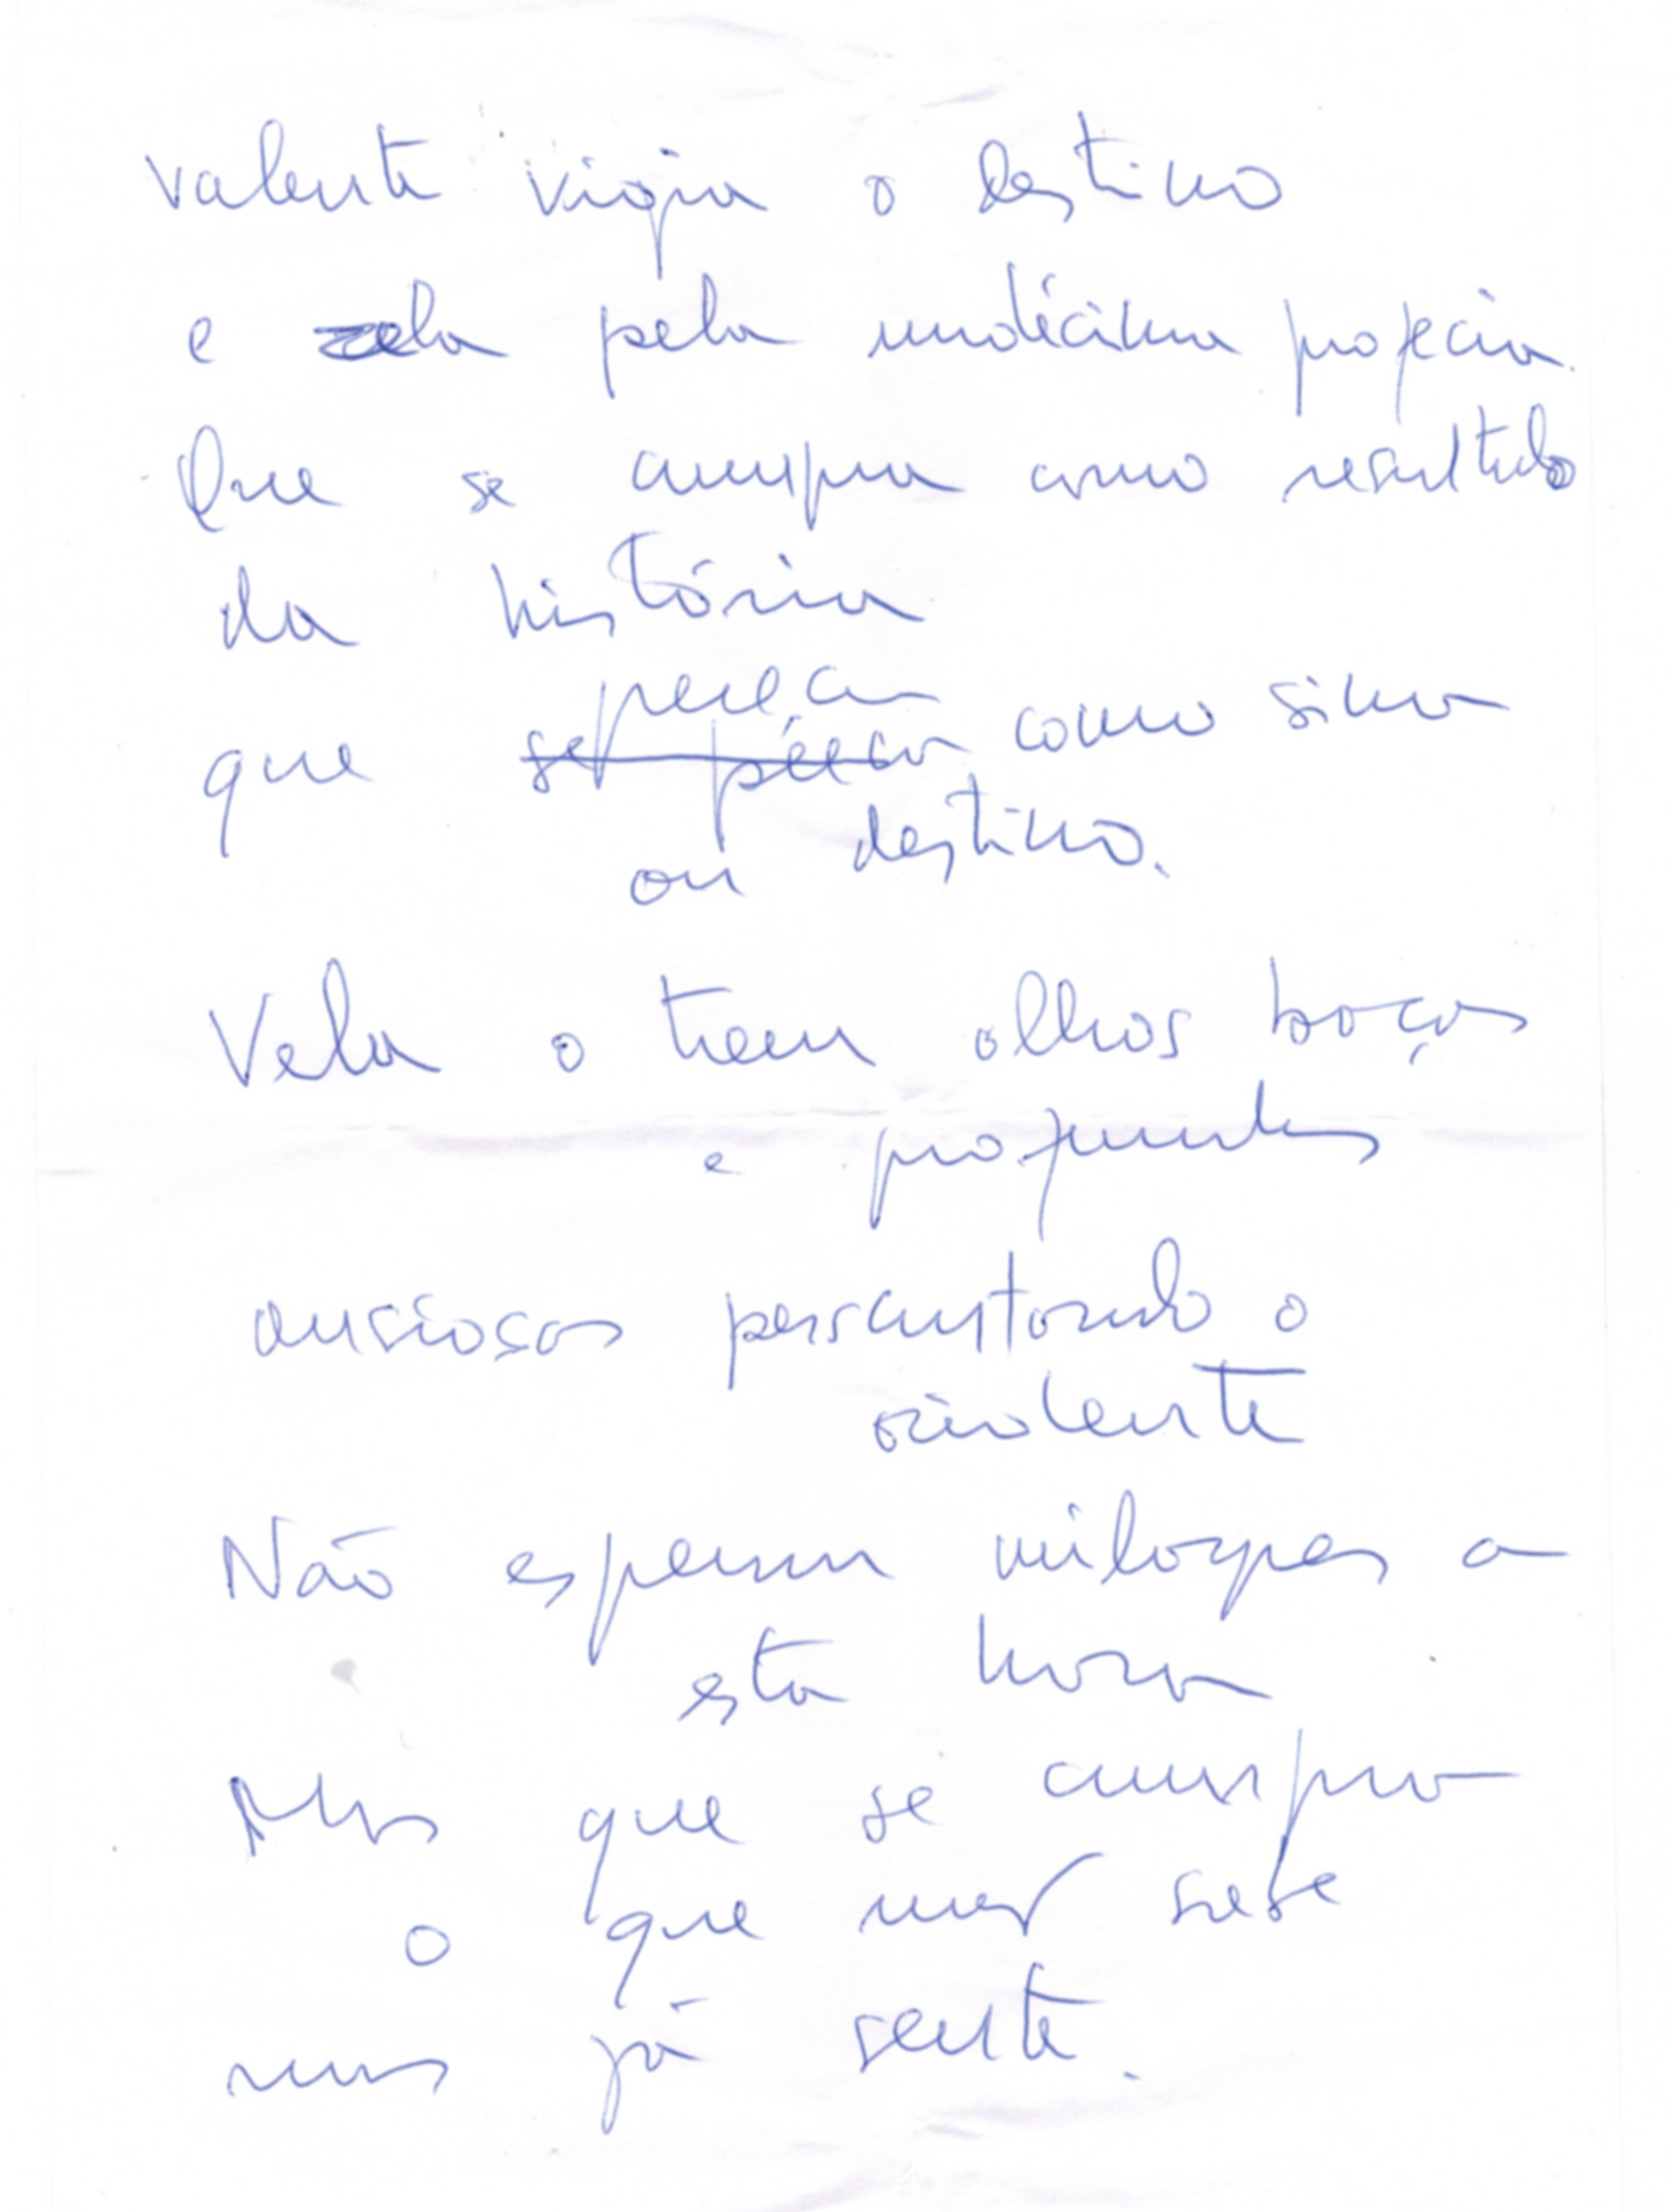 valente vigia o destino
e zela pela undécima profecia.
Que se cumpra como resultado
da história
que pereça como sina
ou destino.
Vela o trem olhos baços
e profundos
ansiosos perscrutando o
ocidente
Não espera milagres a
esta hora
Mas que se cumpra
o que não sabe
mas já sente.